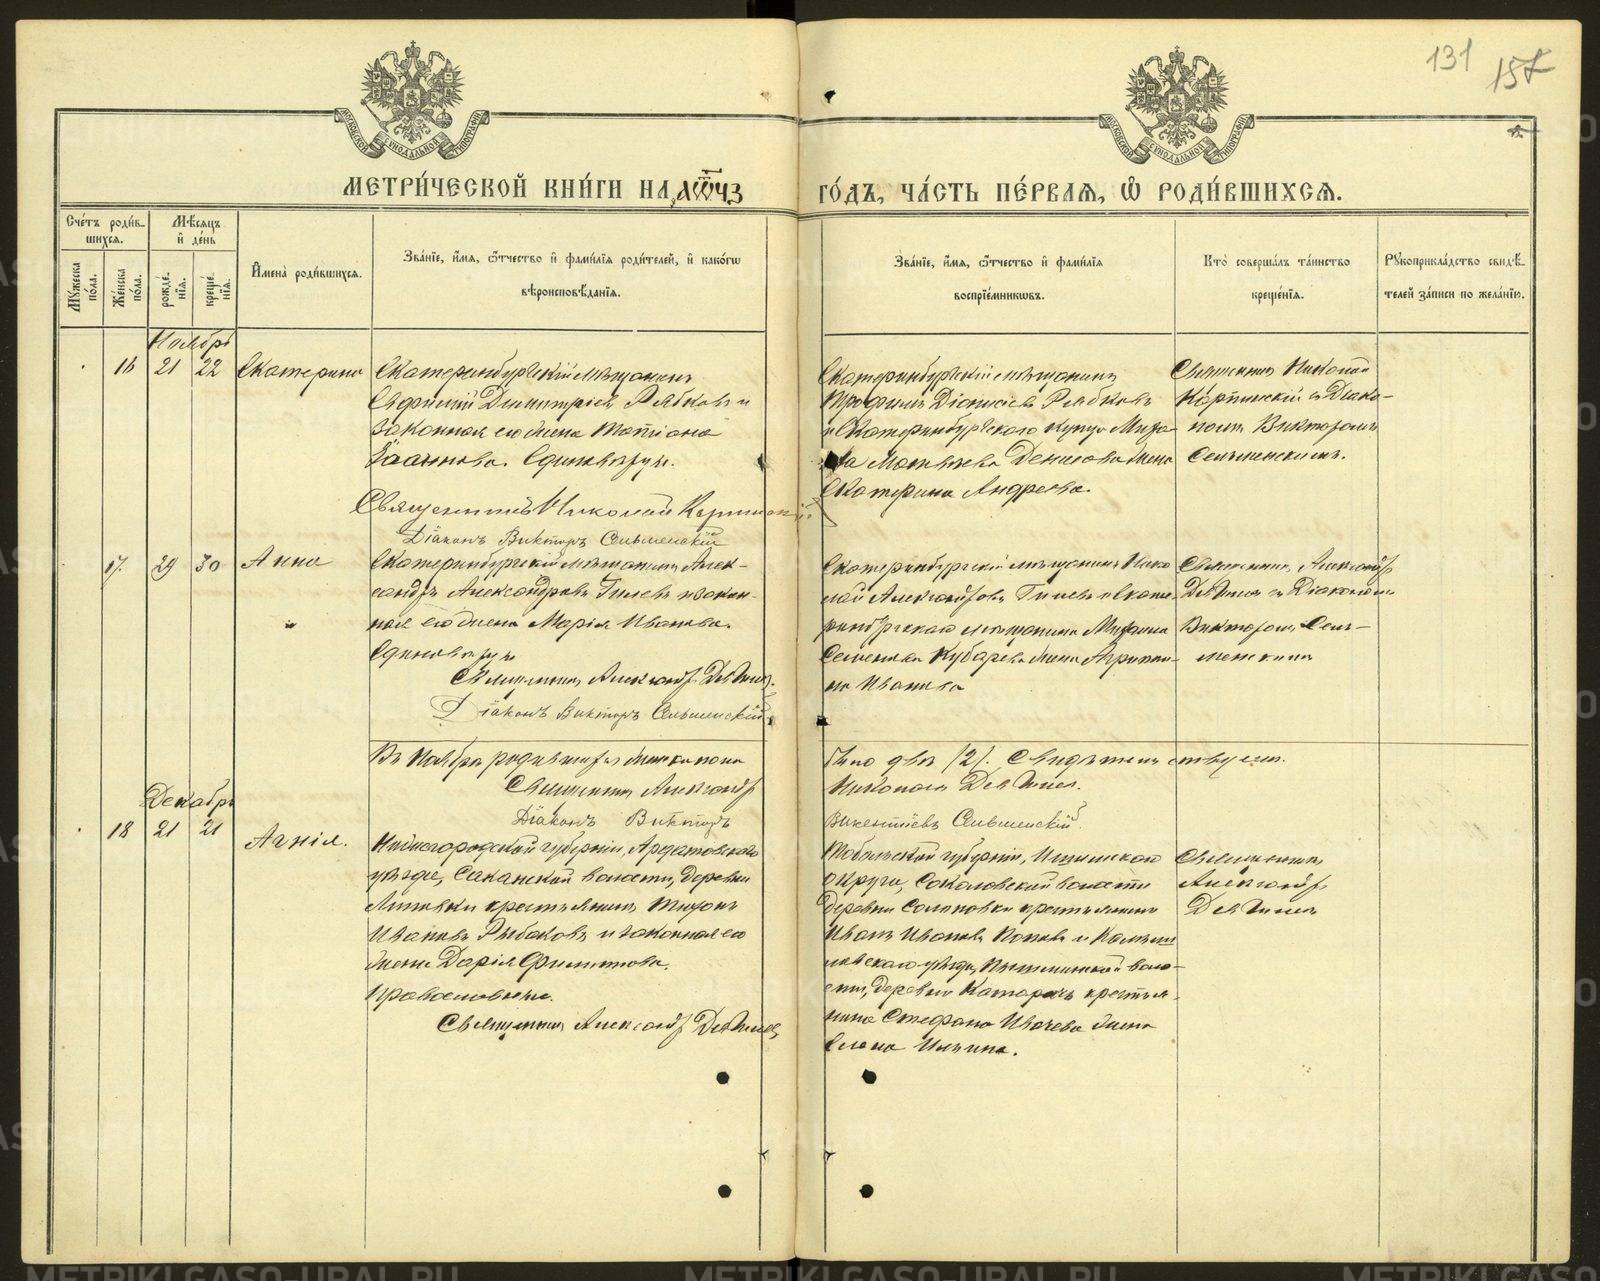 131 157
МОСКОВСКОЙ СѴНОДАЛЬНОЙ ТИПОГРАФІИ
МОСКОВСКОЙ СѴНОДАЛЬНОЙ ТИПОГРАФІИ
МЕТРИ́ЧЕСКОЙ КНИ́ГИ НА ҂АѾЧЗ ГО́ДЪ, ЧА́СТЬ ПЕ́РВАЯ, Ѡ҆ РОДИ́ВШИХСЯ.
Сче́тъ роди́вшихся.
Мѣ́сяцъ и҆ де́нь
Му́жеска по́ла.
Же́нска по́ла.
рожде́нїя.
креще́нїя.
И҆мена̀ роди́вшихся.
Зва́нїе, и҆́мя, ѻ҆́тчество и҆ фами́лїя роди́телей, и҆ како́гѡ
вѣроисповѣ́данїя.
Зва́нїе, и҆́мя, ѻ҆́тчество и҆ фами́лїя
воспрїе́мникѡвъ.
Кто̀ соверша́лъ та́инство
креще́нїя.
Рꙋкоприкла́дство свидѣ́телей за́писи по жела́нїю.
Ноябрь
16 21 22 Екатерина
Екатеринбургскій мѣщанинъ
Евфимій Димитріевъ Рябковъ и
законная его жена Татіана
Іоаннова. Единовѣрцы.
Священникъ Николай Карпинскій
Діаконъ Викторъ Сельменскій
Екатеринбургскій мѣщанинъ
Трофимъ Діонисіевъ Рябковъ
и Екатеринбургскаго купца Миха-
ила Матвѣева Денисова жена
Екатерина Андреева.
Священникъ Николай
Карпинскій съ Діако-
номъ Викторомъ
Сельменскимъ.
17. 29 30 Анна
Екатеринбургскій мѣщанинъ Алек-
сандръ Александровъ Гилевъ и закон-
ная его жена Марія Иванова.
Единовѣрцы
Священникъ Александръ
Діаконъ Викторъ Сельменскій
Екатеринбургскій мѣщанинъ Нико-
лай Александровъ Гилевъ и Екате-
ринбургскаго мѣщанина Михаила
Семенова Кубарева жена Агрипи-
на Иванова
Священникъ Александръ
съ Діакономъ
Викторомъ Сель-
менскимъ
Въ Ноябрѣ родившихся женска пола было двѣ /2/. Свидѣтельствуемъ.
Священникъ Александръ Николаевъ
Діаконъ Викторъ Викентіевъ Сельменскій
Декабрь
18 21 21 Агнія.
Нижегородской губерніи, Ардатовскаго
уѣзда, Саканской волости, деревни
Липовки крестьянинъ Тихонъ
Ивановъ Рыбаковъ и законная его
жена Дарія Филиппова.
Православные.
Священникъ Александръ
Тобольской губерніи, Ишимскаго
округа, Соколовской волости
деревни крестьянинъ
Иванъ Ивановъ Поповъ и Камыш-
ловскаго уѣзда, Пышминской воло-
сти, деревни Катарачъ крестья-
нина Стефана жена
Елена Ильина.
Священникъ
Александръ
METRIKI.GASO-URAL.RU